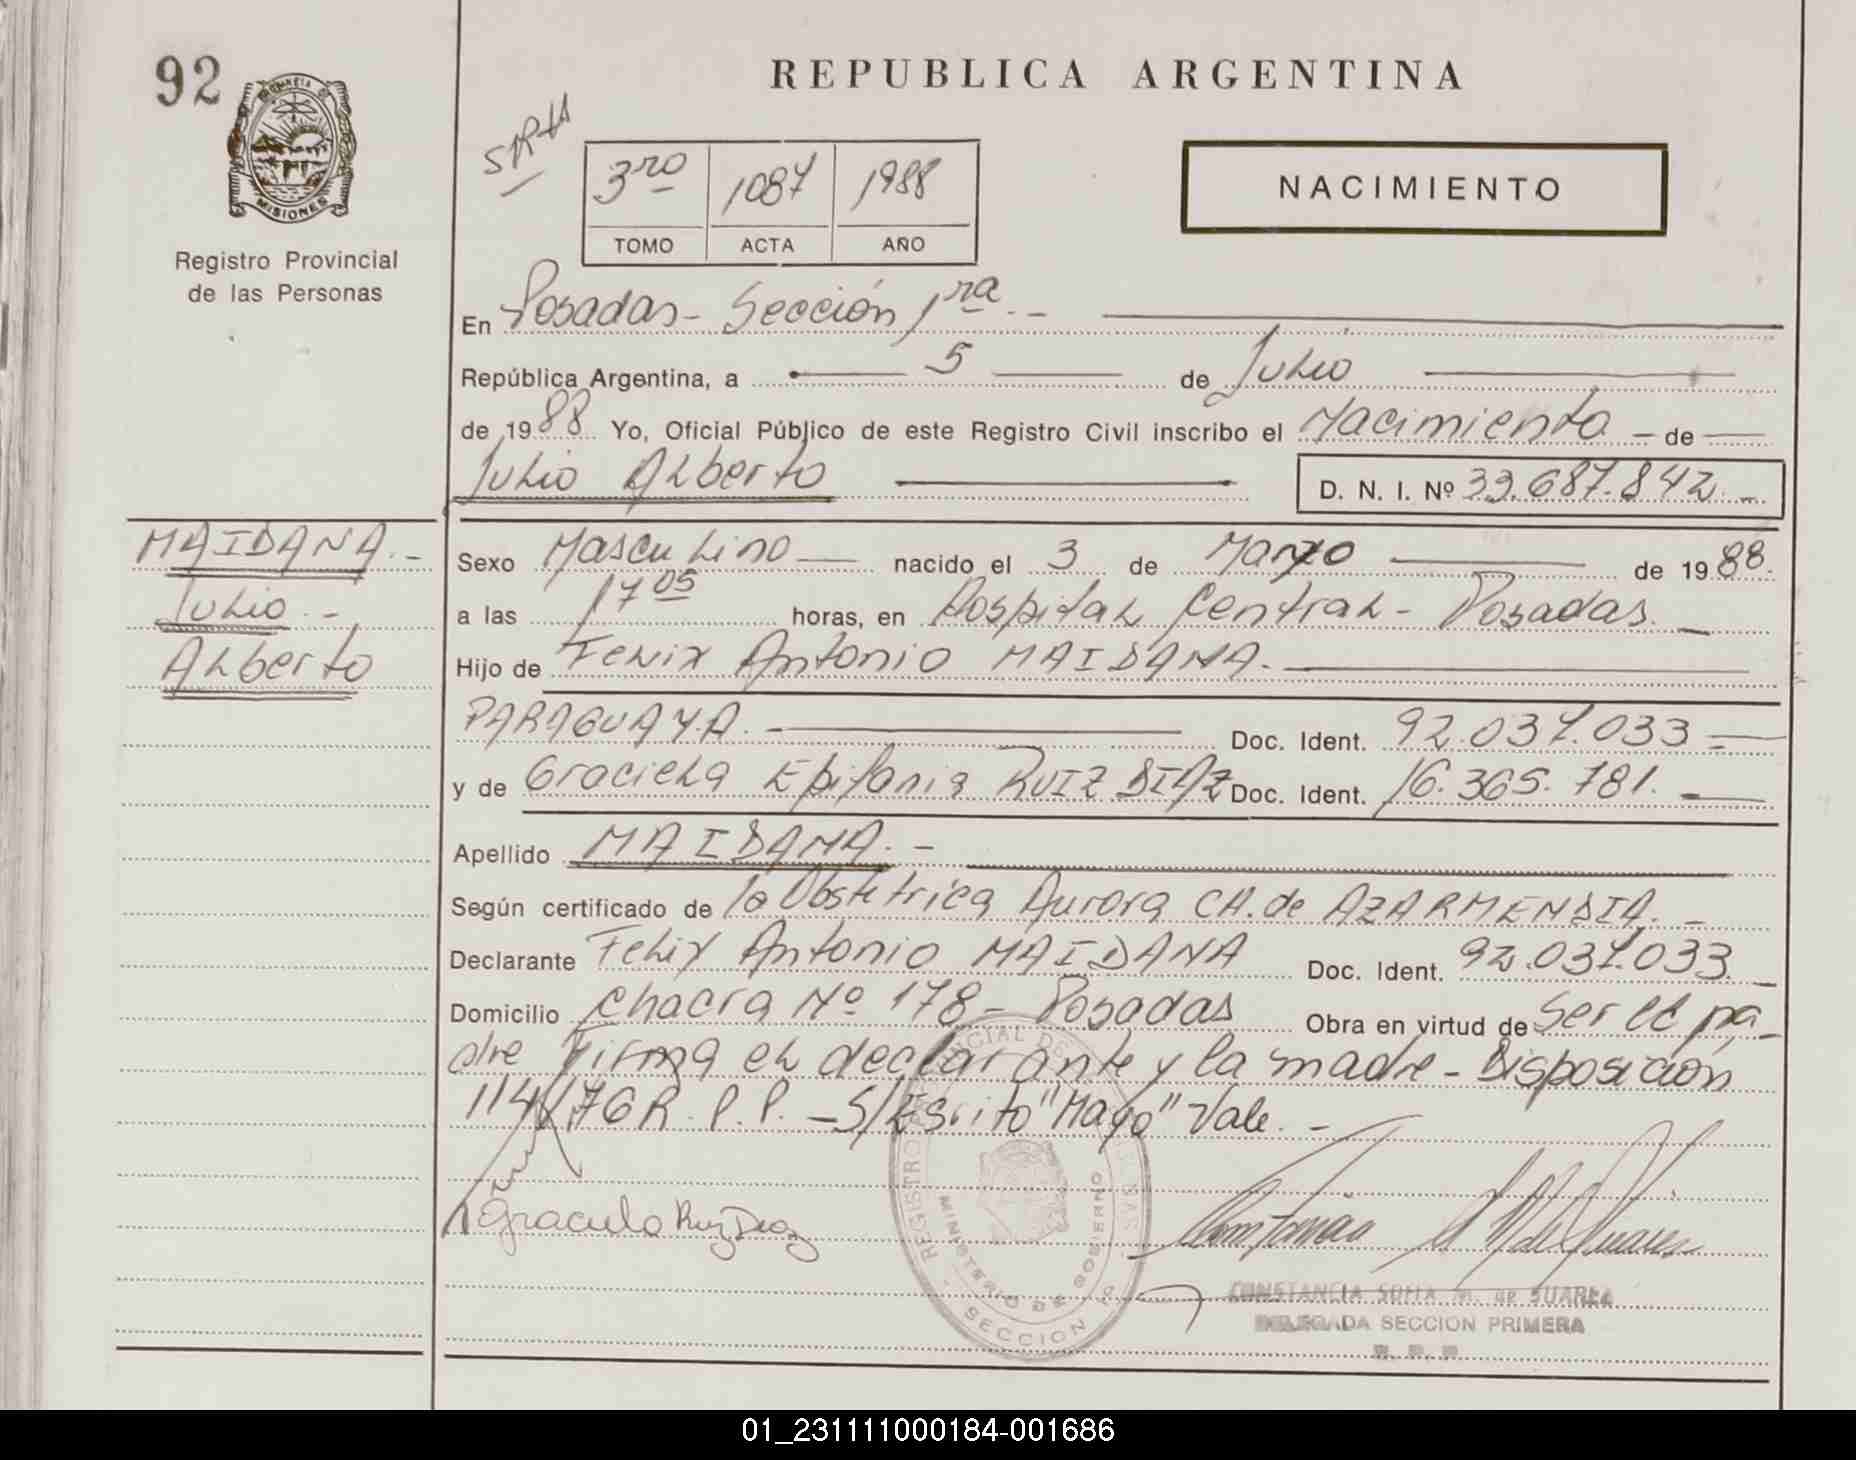 92
REPUBLICA ARGENTINA
PROVINCIA DE
MISIONES
Registro Provincial
de las Personas
3ro 1087 1988
TOMO ACTA AÑO
NACIMIENTO
En Posadas - Sección 1ra. -
República Argentina, a 5 de Julio
de 1988 Yo, Oficial Público de este Registro Civil inscribo el Nacimiento - de
Julio Alberto D. N. I. Nº 33.687.842 -
MAIDANA. -
Julio. -
Alberto
Sexo Masculino nacido el 3 de Marzo de 1988.
a las 17 05 horas, en Hospital Central - Posadas. -
Hijo de Felix Antonio MAIDANA. -
PARAGUAYA. - Doc. Ident. 92.037.033 -
y de Graciela Epifania RUIZ DIAZ Doc. Ident. 16.365.781. -
Apellido MAIDANA. -
Según certificado de la Obstetrica Aurora CH. de AZARMENDIA. -
Declarante Felix Antonio MAIDANA Doc. Ident. 92.037.033. -
Domicilio Chacra Nº 178 - Posadas Obra en virtud de Ser el pa-
dre Firma el declarante y la madre - Disposición
114/76 R. P. P. - S/Escrito "Mayo" Vale. -
Graciela Ruiz Diaz
REGISTRO PROVINCIAL DE LAS PERSONAS
MINISTERIO DE GOBIERNO
SECCION
CONSTANCIA SOFIA M. de SUAREZ
DELEGADA SECCION PRIMERA
R. P. P.
01_231111000184-001686